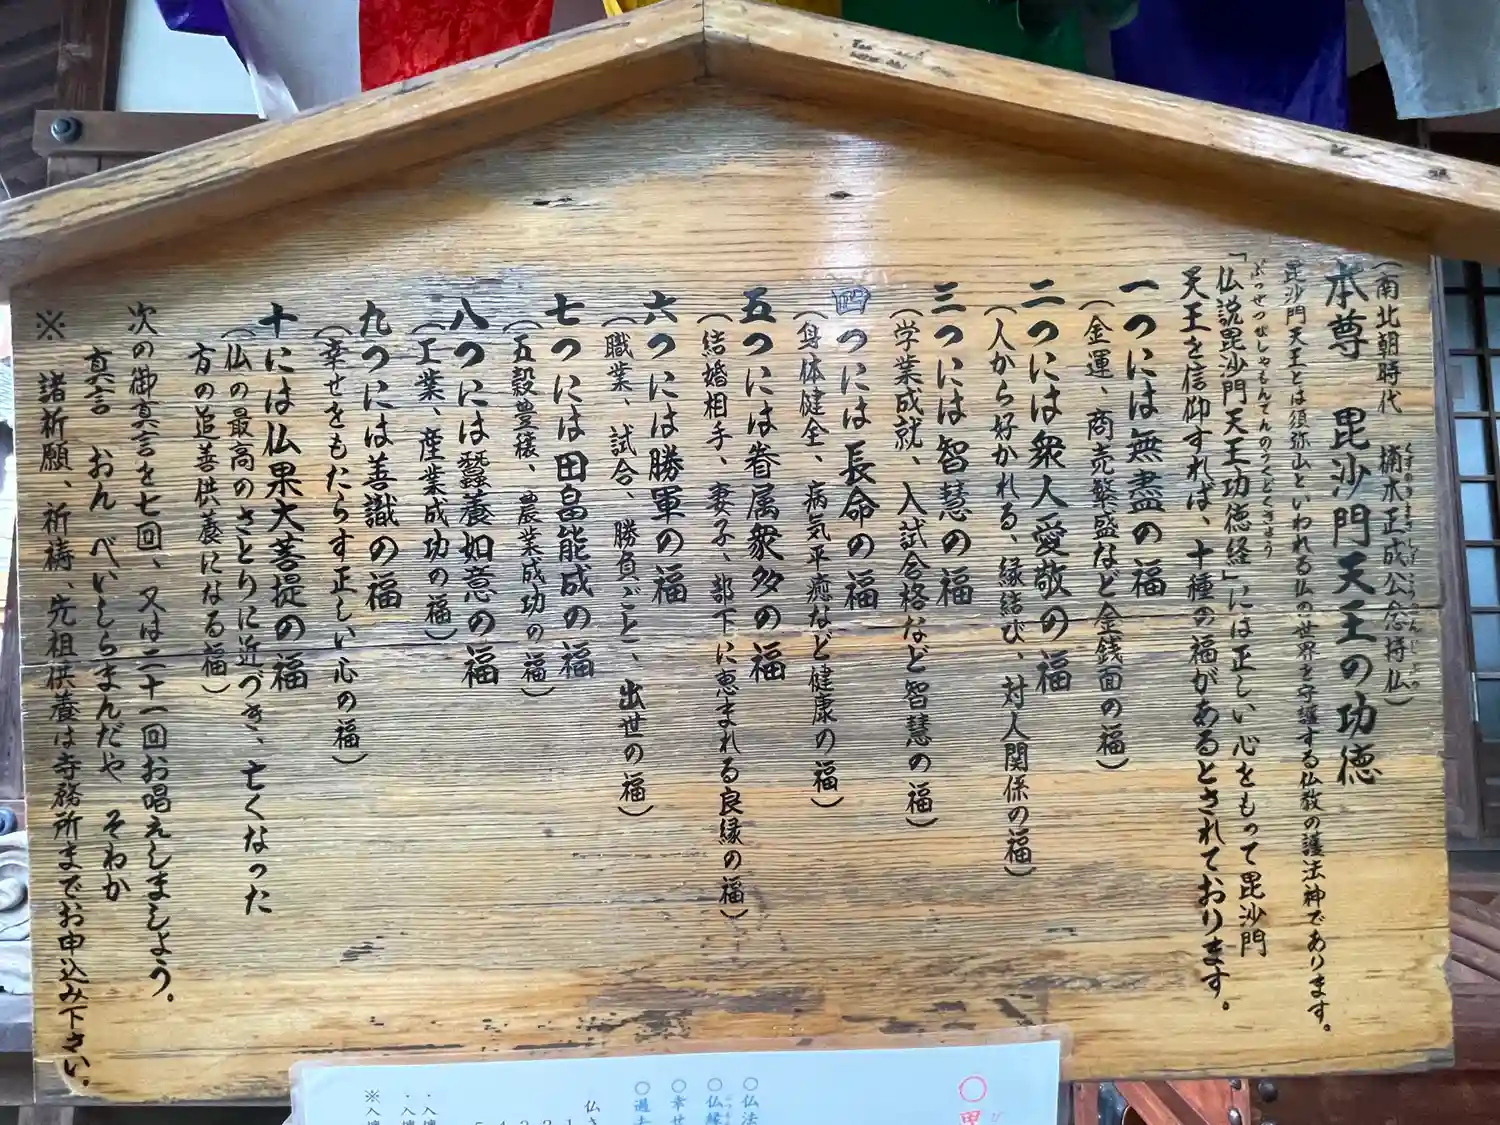 (南北朝時代 楠木正成公念持仏)
くすのきまさしげこうねんじぶつ
本尊 毘沙門天王の功徳
毘沙門天王とは須弥山といわれる仏の世界を守護する仏教の護法神であります。
ぶっせつびしゃもんてんのうくどくきょう
「仏説毘沙門天王功徳経」には正しい心をもって毘沙門
天王を信仰すれば、十種の福があるとされております。
一つには無盡の福
(金運、商売繁盛など金銭面の福)
二つには衆人愛敬の福
(人から好かれる、縁結び、対人関係の福)
三つには智慧の福
(学業成就、入試合格など智慧の福)
四つには長命の福
(身体健全、病気平癒など健康の福)
五つには眷属衆多の福
(結婚相手、妻子、部下に恵まれる良縁の福)
六つには勝軍の福
(職業、試合、勝負ごと、出世の福)
七つには田畠能成の福
(五穀豊穣、農業成功の福)
八つには蠶養如意の福
(工業、産業成功の福)
九つには善識の福
(幸せをもたらす正しい心の福)
十には仏果大菩提の福
(仏の最高のさとりに近づき、亡くなった
方の追善供養になる福)
次の御真言を七回、又は二十一回お唱えしましょう。
真言 おん べいしらまんだや そわか
※ 諸祈願、祈祷、先祖供養は寺務所までお申込み下さい。
○仏法
○仏縁
○幸せ
○過去
仏さ
1
2
3
4
5
・入
・入
※入